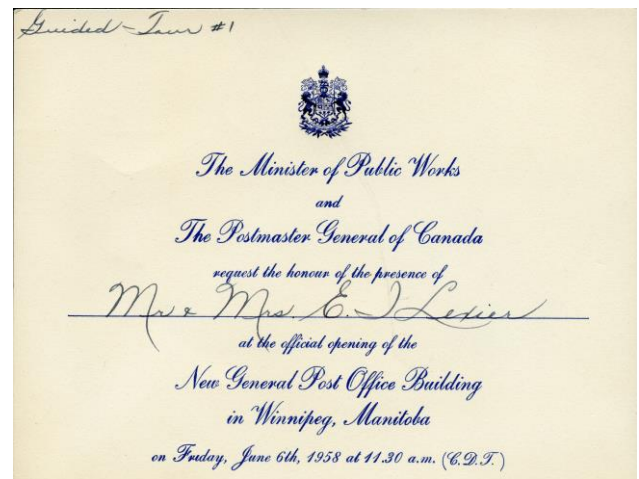 Guided-Tour #1
The Minister of Public Works
and
The Postmaster General of Canada
request the honour of the presence of
Mr & Mrs E. I Lexier
at the official opening of the
New General Post Office Building
in Winnipeg, Manitoba
on Friday, June 6th, 1958 at 11.30 a.m. (C.D.T.)